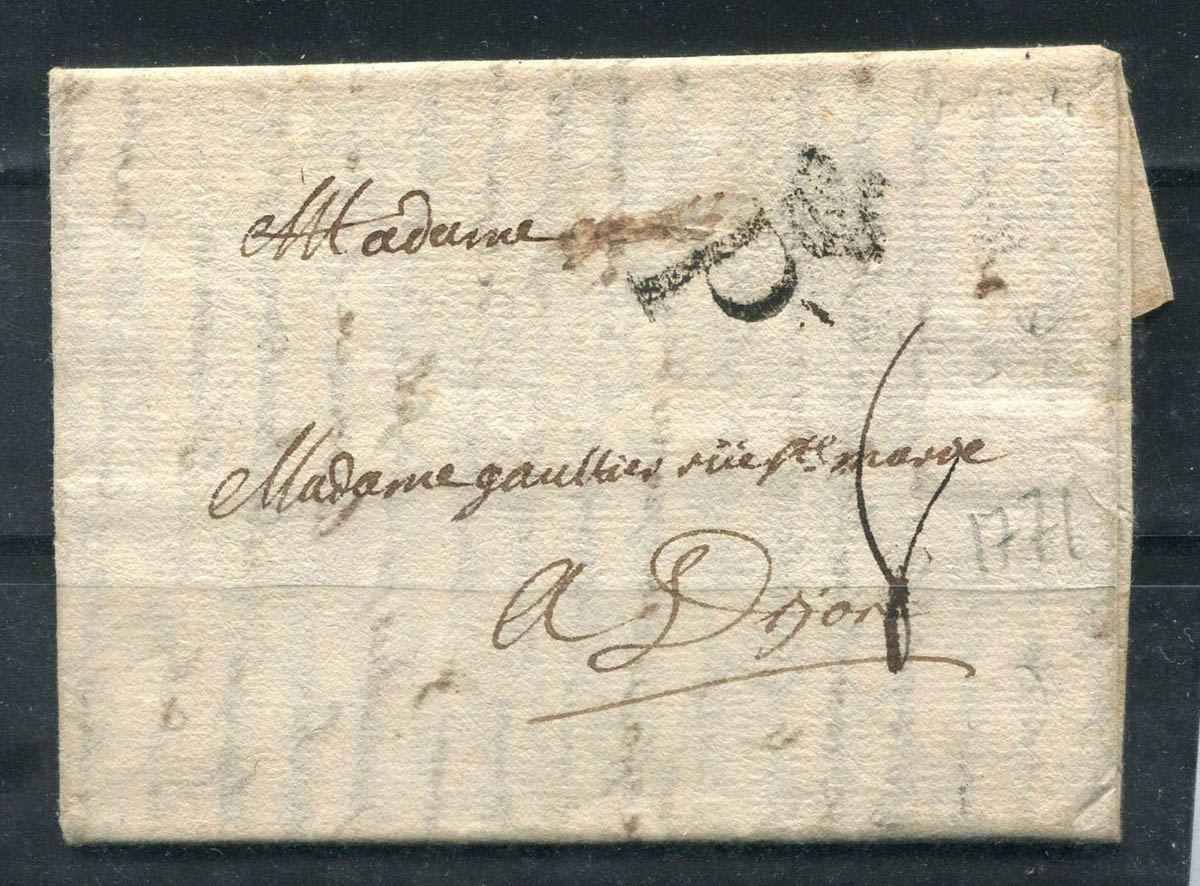 Madame
P
Madame gaultier rüe ste marie
A Dijon
1771